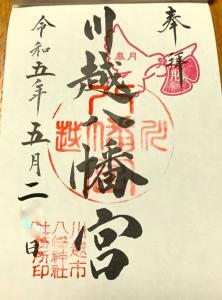 奉拝
皐月
川越八幡宮
令和五年五月二 日
川越市
八幡神社
社務所印